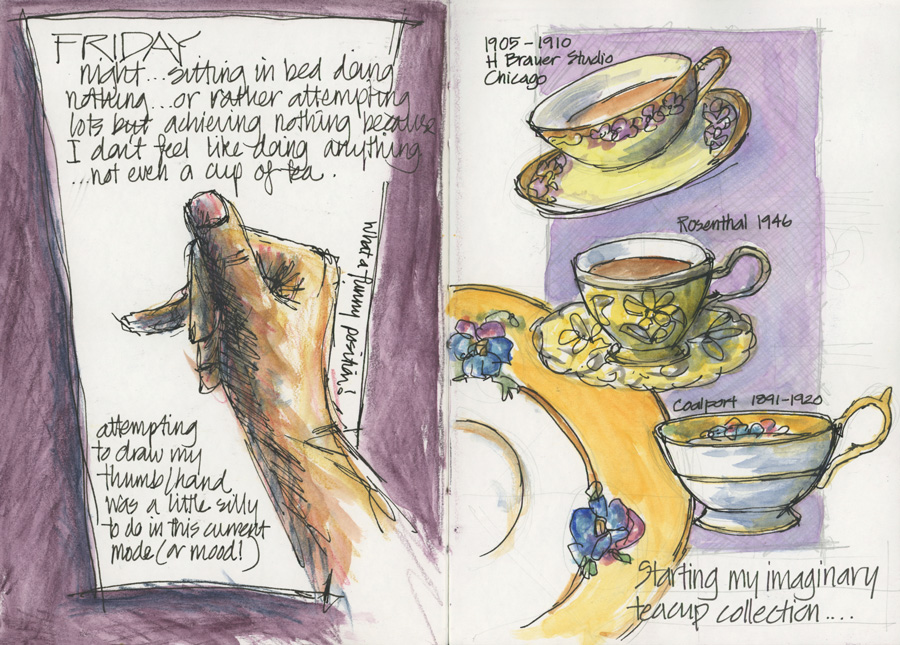 FRIDAY
night... sitting in bed doing
nothing... or rather attempting
lots but achieving nothing because
I don't feel like doing anything
...not even a cup of tea.
What a funny position!
attempting
to draw my
thumb/hand
was a little silly
to do in this current
mode (or mood!)
1905-1910
H Brauer Studio
Chicago
Rosenthal 1946
Coalport 1891-1920
Starting my imaginary
teacup collection....